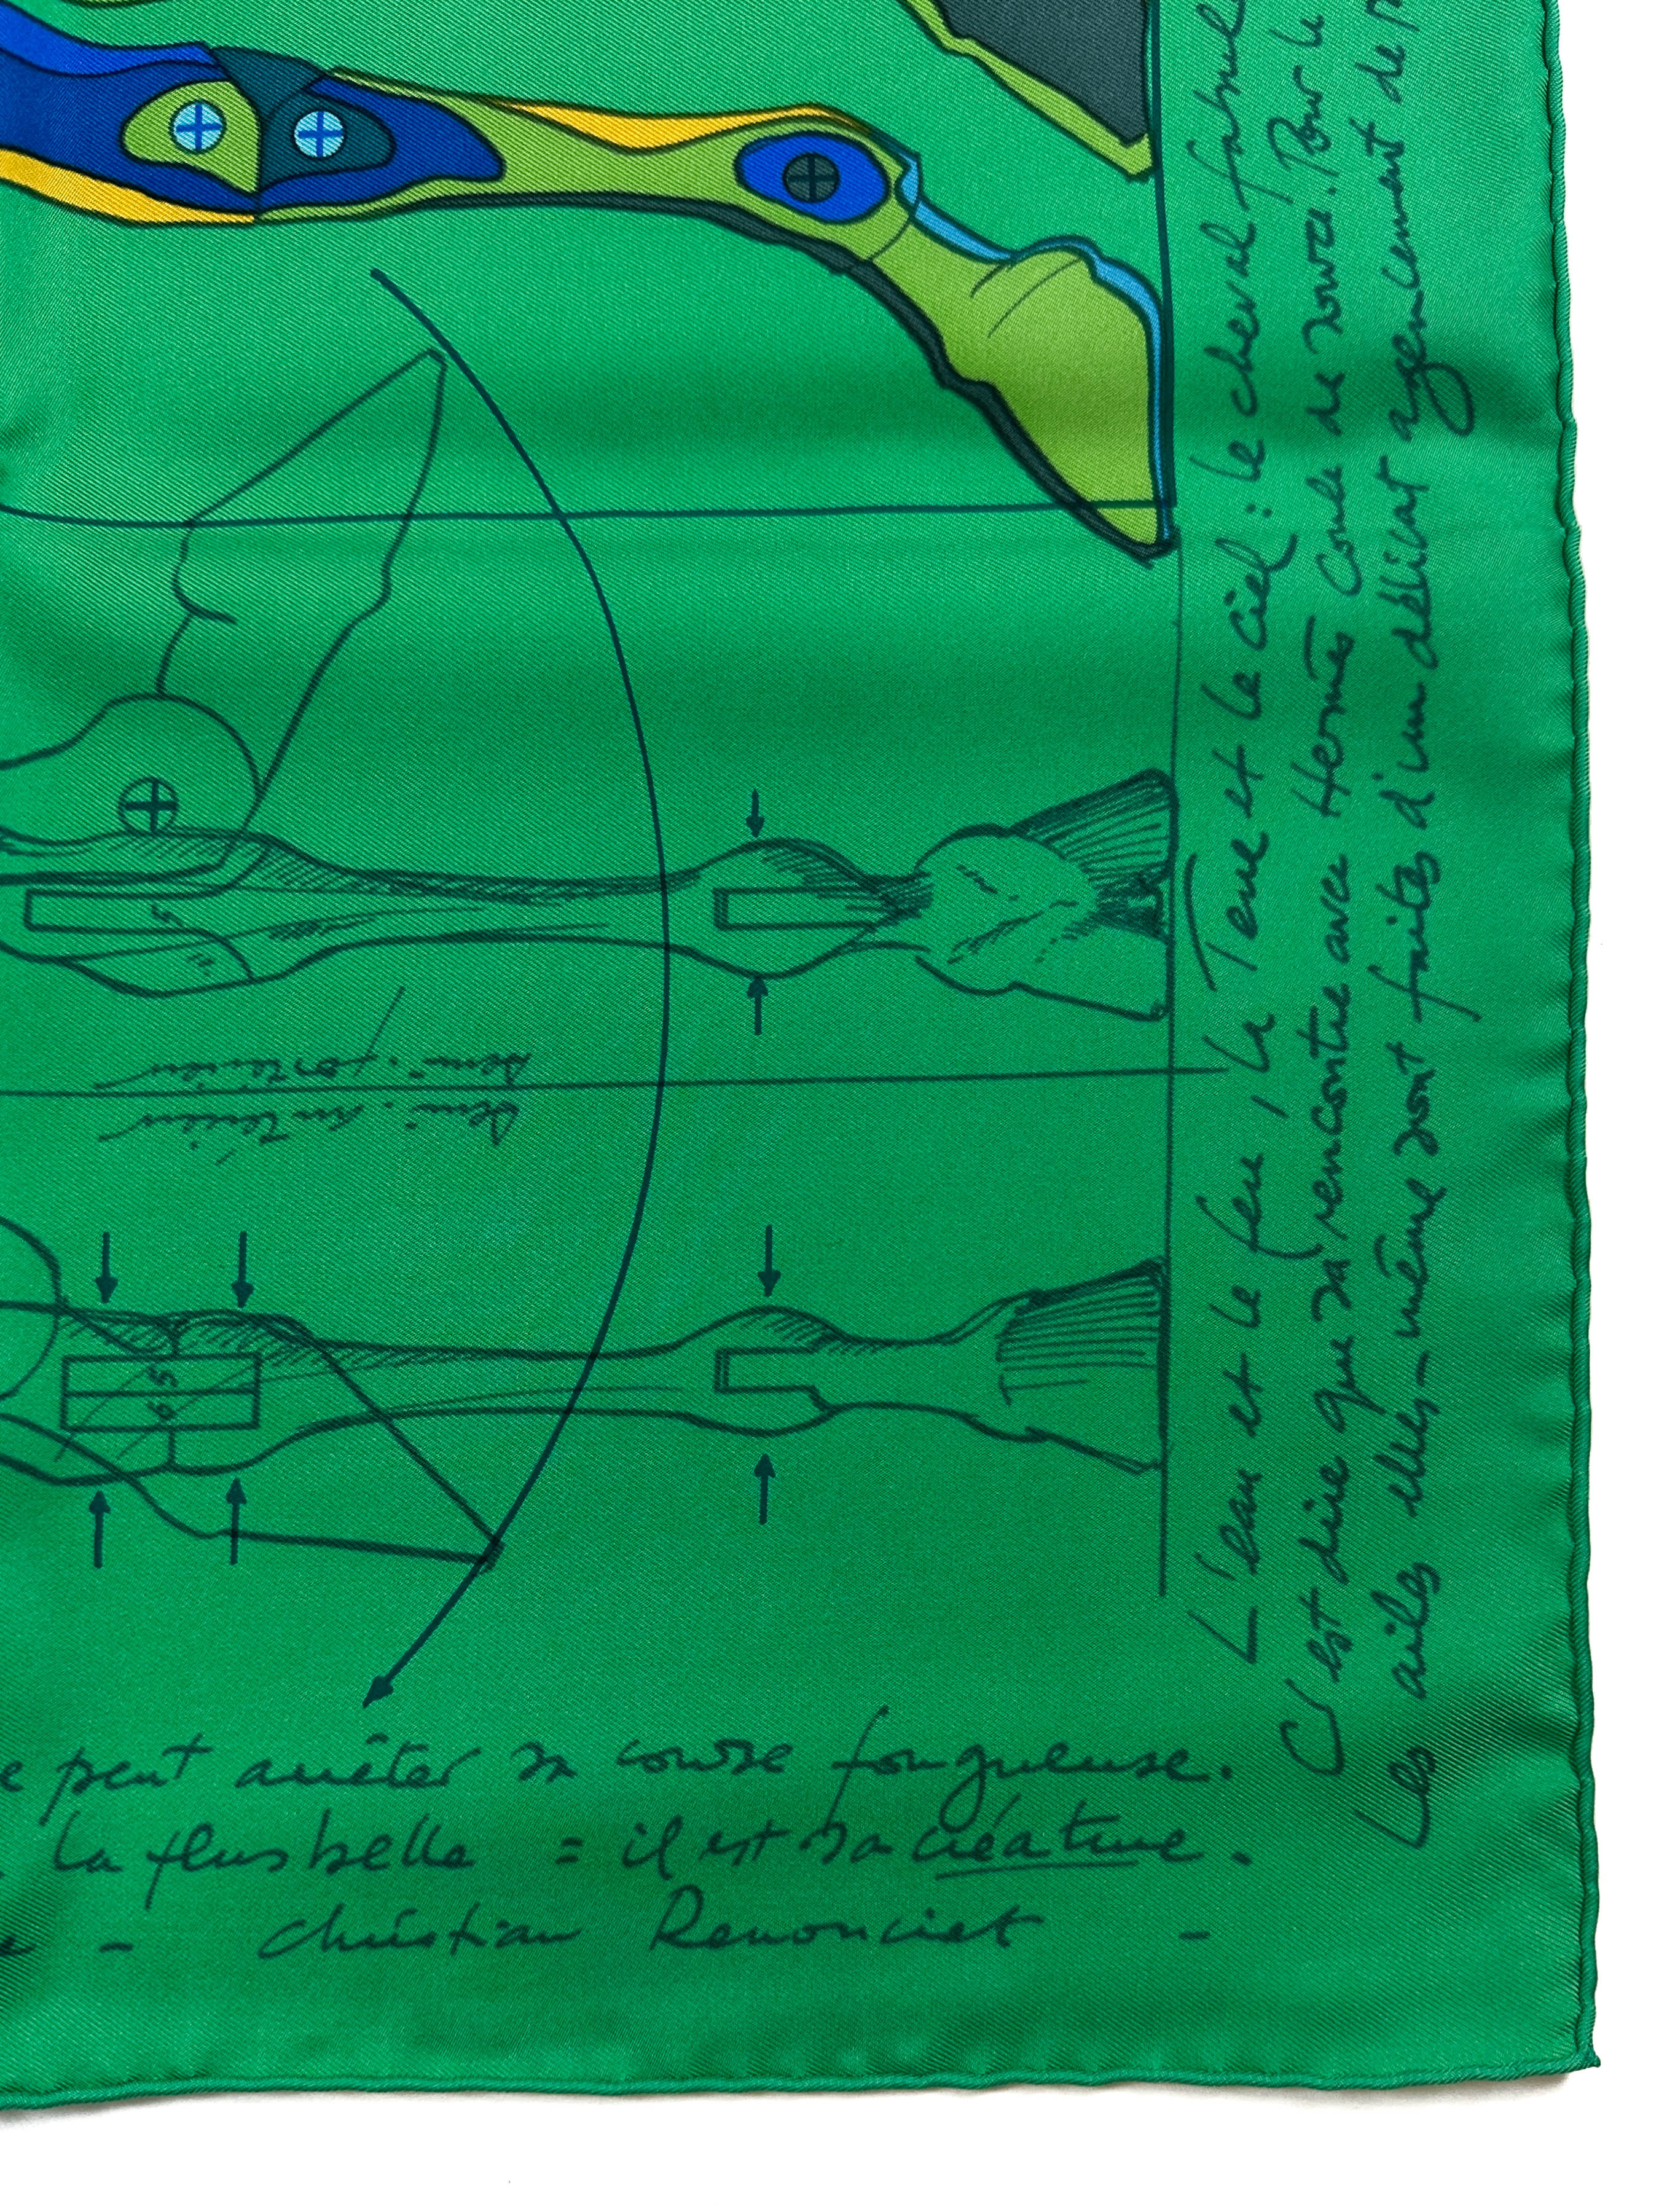 L'eau et le feu, la Terre et le ciel : le cheval fabul
C'est dire que sa rencontre avec Hermès Coule de source. Pour le
Les ailes elles-même sont faites d'un délicat agencement de p
demi-postérieur
demi-antérieur
5
5
6
e peut arrêter sa course fougueuse.
La plus belle = il est sa créature.
e - Christian Renonciat -